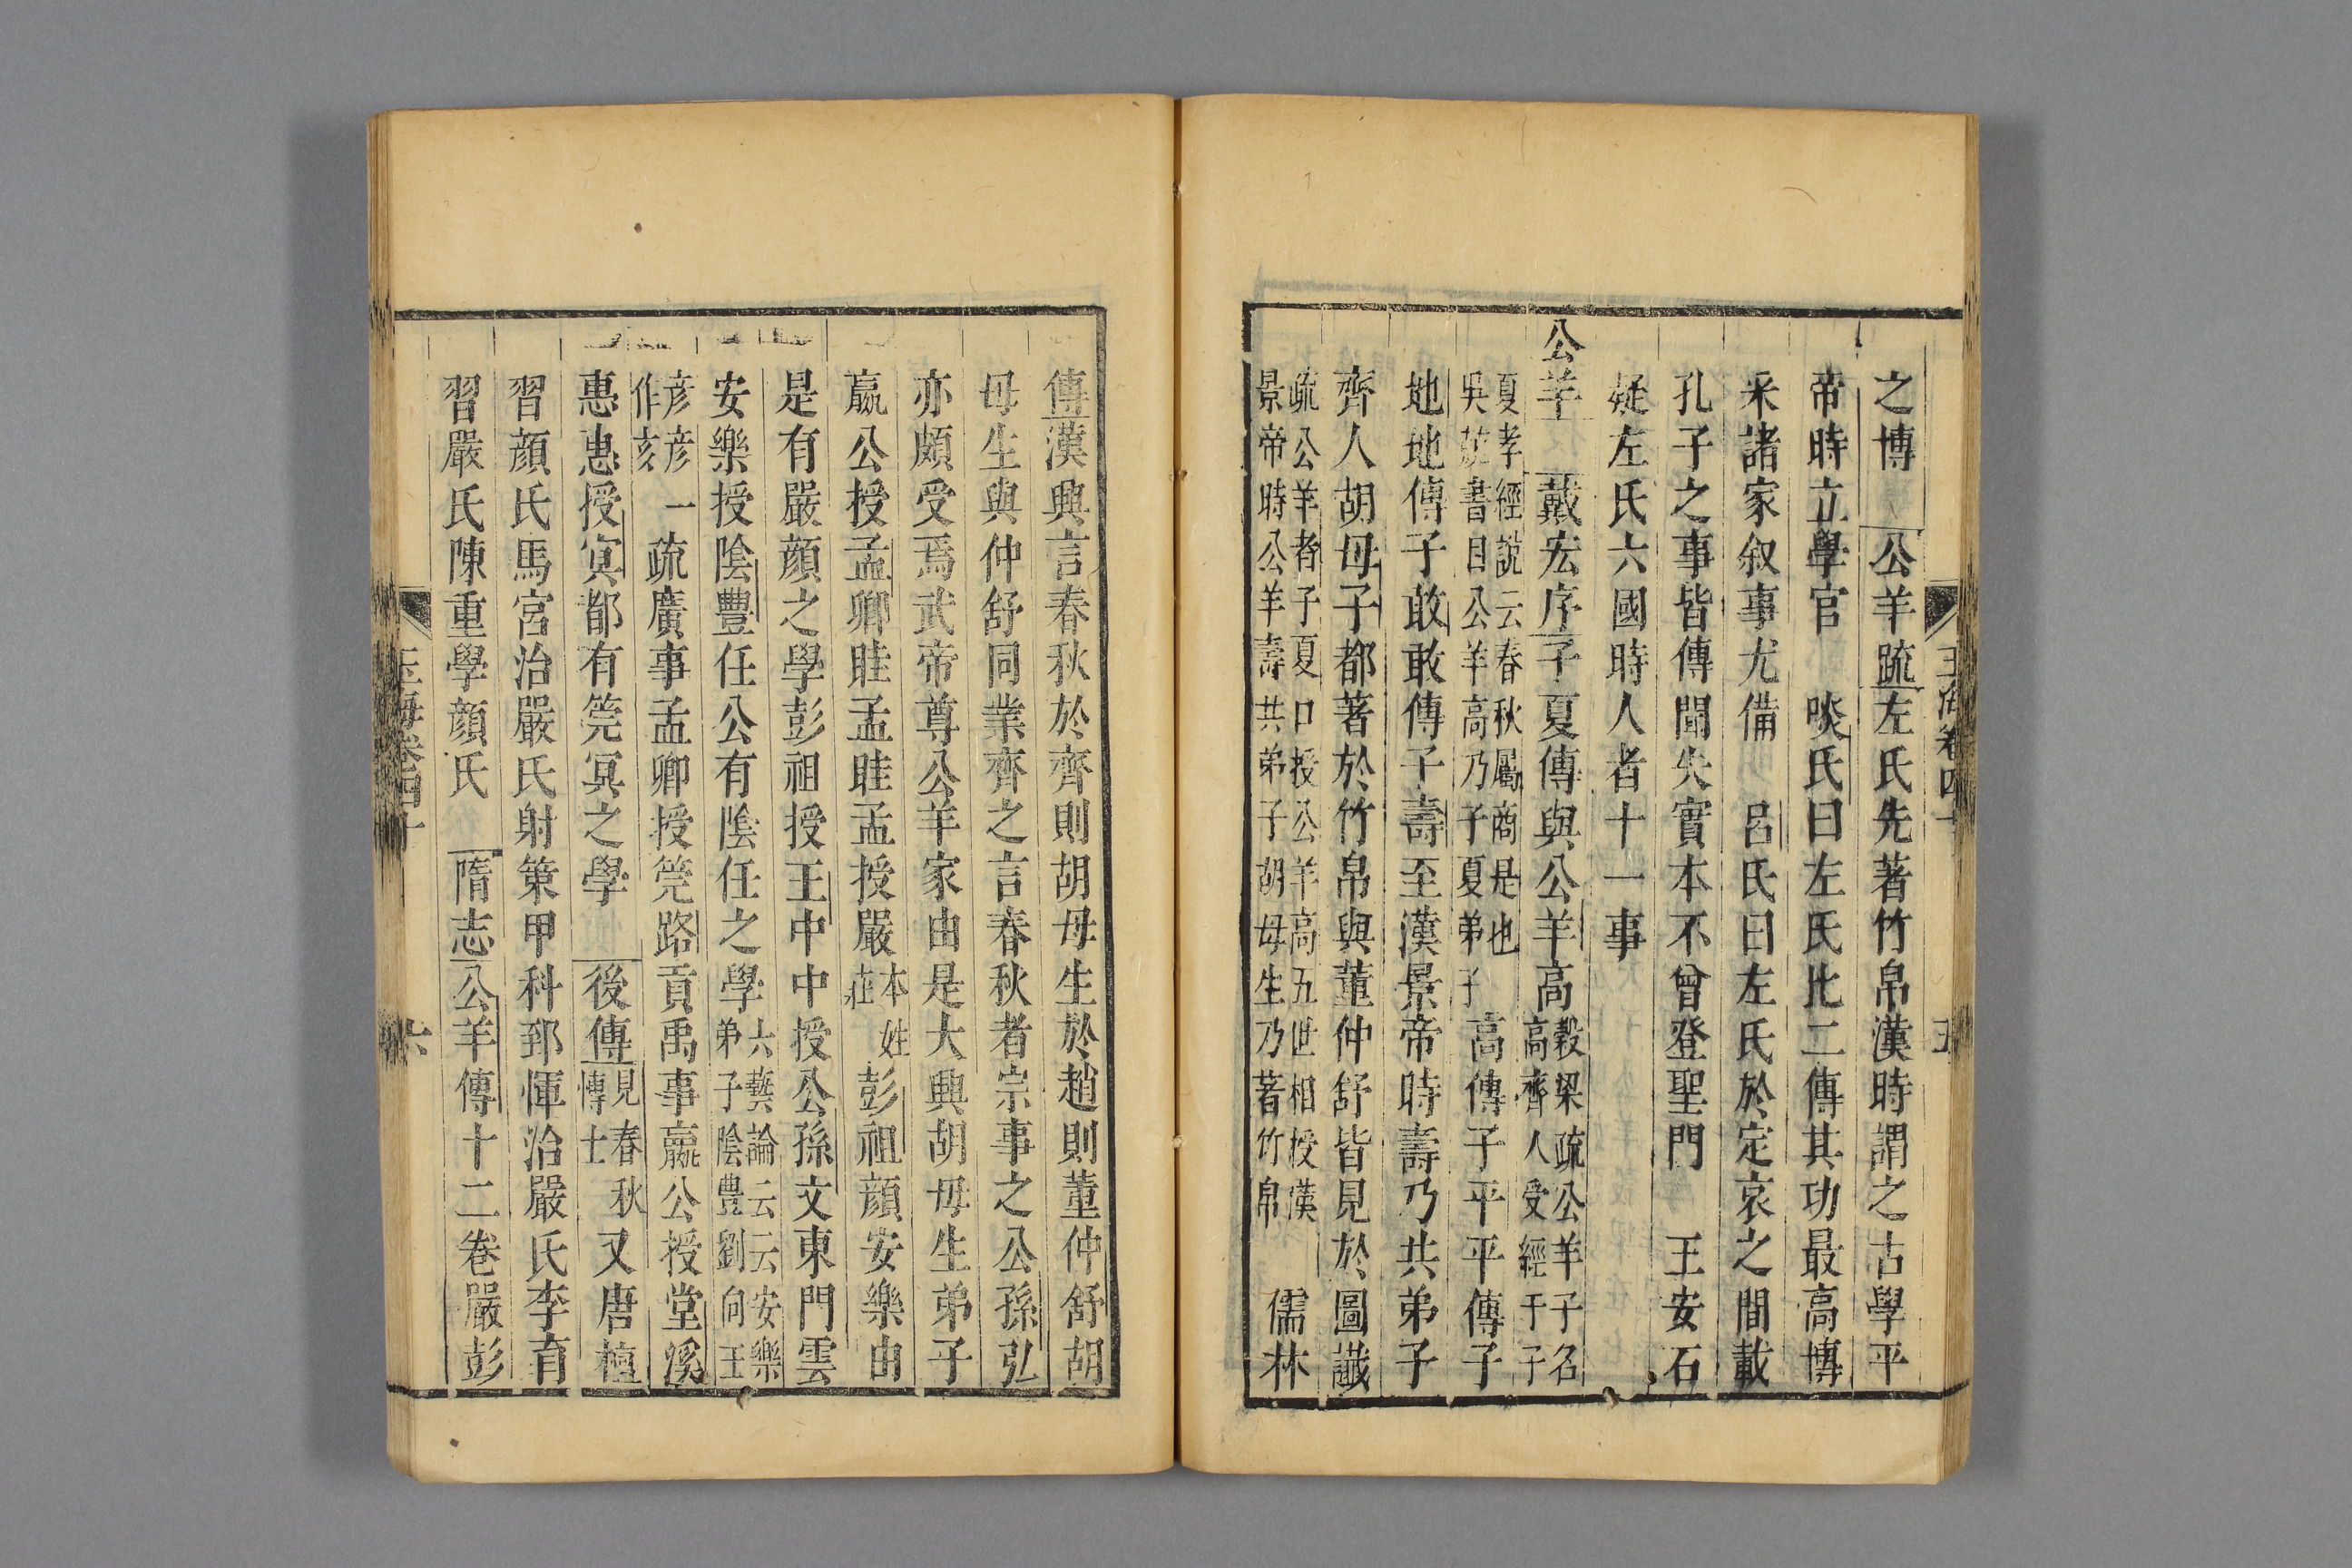 之博　公羊疏左氏先著竹帛漢時謂之古學平
帝時立學官　啖氏曰左氏比二傳其功最高博
采諸家叙事尤備　呂氏曰左氏於定哀之間載
孔子之事皆傳聞失實本不曾登聖門　王安石
疑左氏六國時人者十一事
公羊　戴宏序子夏傳與公羊高穀梁疏公羊子名
高齊人受經于子
夏孝經說云春秋屬商是也
吳兢書目公羊高乃子夏弟子高傳子平平傳子
地地傳子敢敢傳子壽至漢景帝時壽乃共弟子
齊人胡母子都著於竹帛與董仲舒皆見於圖讖
疏公羊者子夏口授公羊高五世相授漢
景帝時公羊壽共弟子胡母生乃著竹帛　儒林
玉海卷四十　五
傳漢興言春秋於齊則胡母生於趙則董仲舒胡
母生與仲舒同業齊之言春秋者宗事之公孫弘
亦頗受焉武帝尊公羊家由是大興胡母生弟子
嬴公授孟卿眭孟眭孟授嚴本姓
莊彭祖顏安樂由
是有嚴顏之學彭祖授王中中授公孫文東門雲
安樂授陰豐任公有陰任之學六藝論云云安樂
弟子陰豐劉向王
彥彥一
作亥疏廣事孟卿授筦路貢禹事嬴公授堂溪
惠惠授冥都有筦冥之學　後傳見春秋
傳士又唐檀
習顏氏馬宮治嚴氏射策甲科郅惲治嚴氏李育
習嚴氏陳重學顏氏　隋志公羊傳十二卷嚴彭
玉海卷四十　六